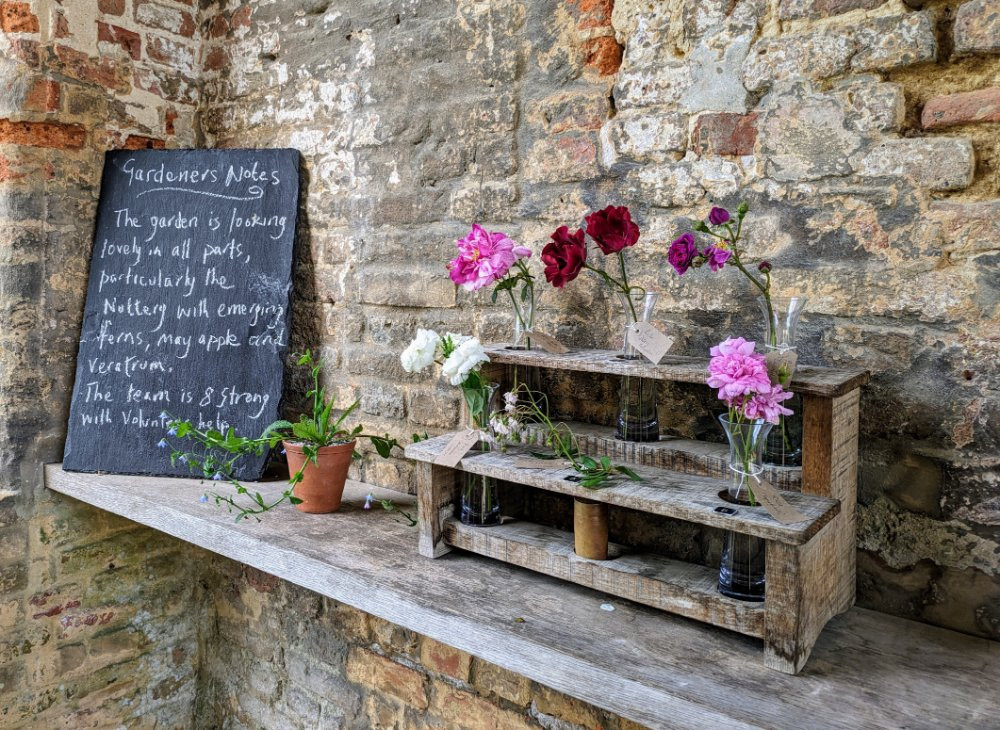 Gardeners Notes
The garden is looking
lovely in all parts,
particularly the
Nuttery with emerging
ferns, may apple and
veratrum.
The team is 8 strong
with Volunt help